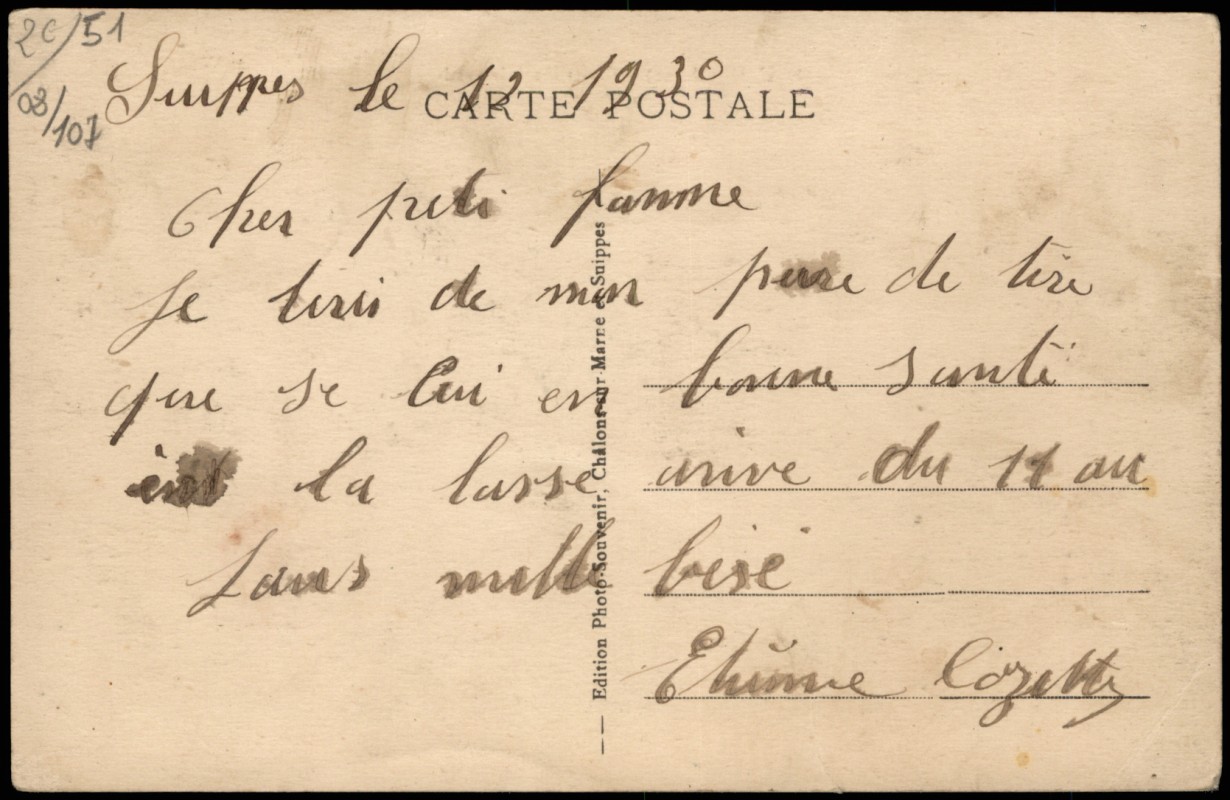 2c/51
08/107
Suippes le 12 1930
CARTE POSTALE
Cher peti famme
Je de mon de tire
que se lui en bonne santé
la lasse arive du 11 au
mille bise
Etienne
— Edition Photo-Souvenir, Châlons-sur-Marne et Suippes —